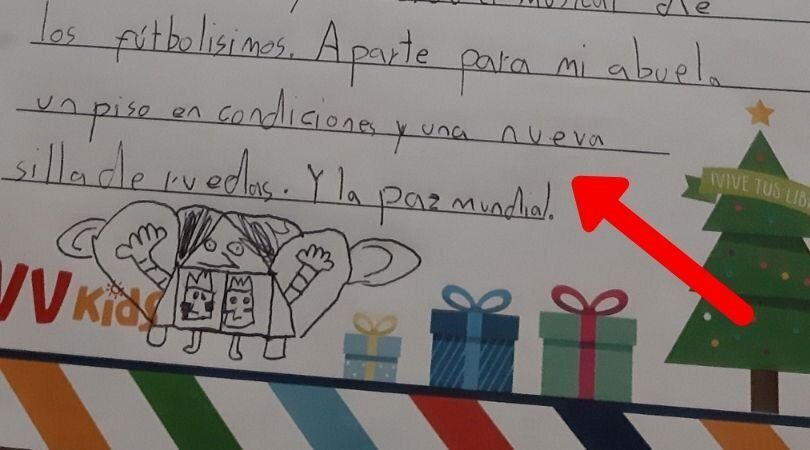 musical de
los fútbolisimos. Aparte para mi abuela
un piso en condiciones y una nueva
silla de ruedas. Y la paz mundial.
¡VIVE TUS LIB
VV Kids